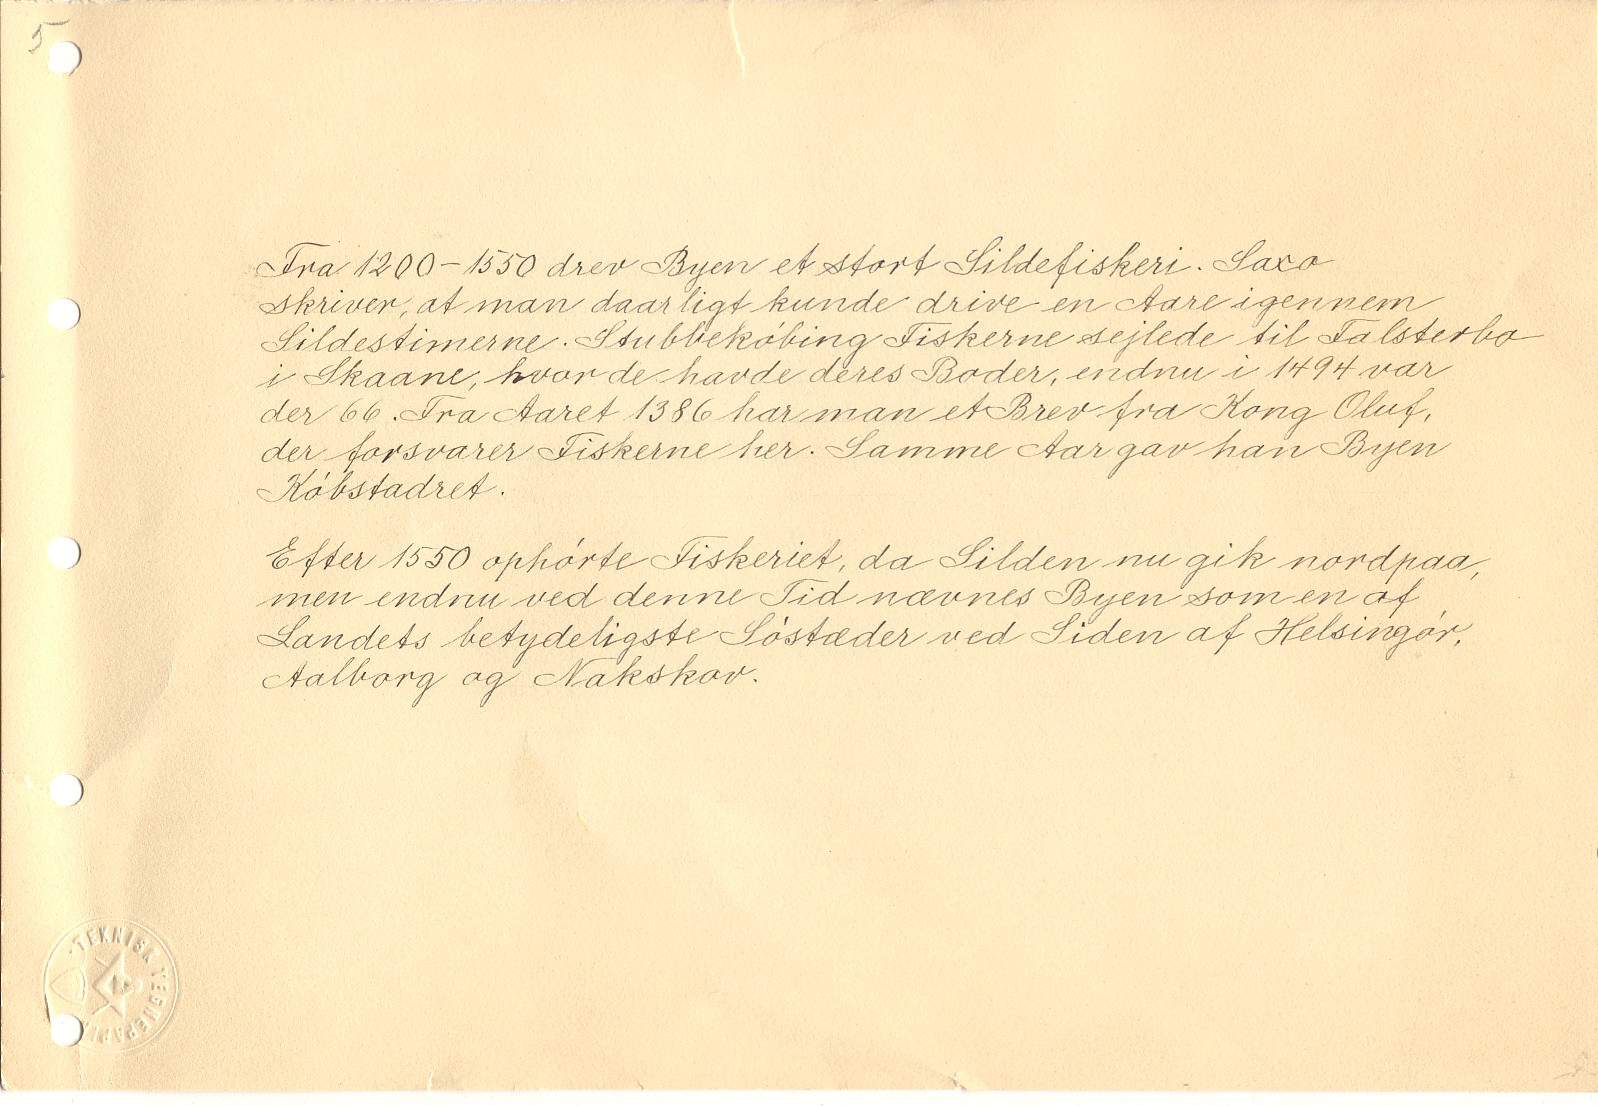 5
Fra 1200-1550 drev Byen et stort Sildefiskeri. Saxo
skriver, at man daarligt kunde drive en Aare igennem
Sildestimerne. Stubbekøbing Fiskerne sejlede til Falsterbo
i Skaane, hvor de havde deres Boder, endnu i 1494 var
der 66. Fra Aaret 1386 har man et Brev fra Kong Oluf,
der forsvarer Fiskerne her. Samme Aar gav han Byen
Købstadret.
Efter 1550 ophørte Fiskeriet, da Silden nu gik nordpaa,
men endnu ved denne Tid nævnes Byen som en af
Landets betydeligste Søstæder ved Siden af Helsingør,
Aalborg og Nakskov.
TEKNISK TEGNEPAPIR